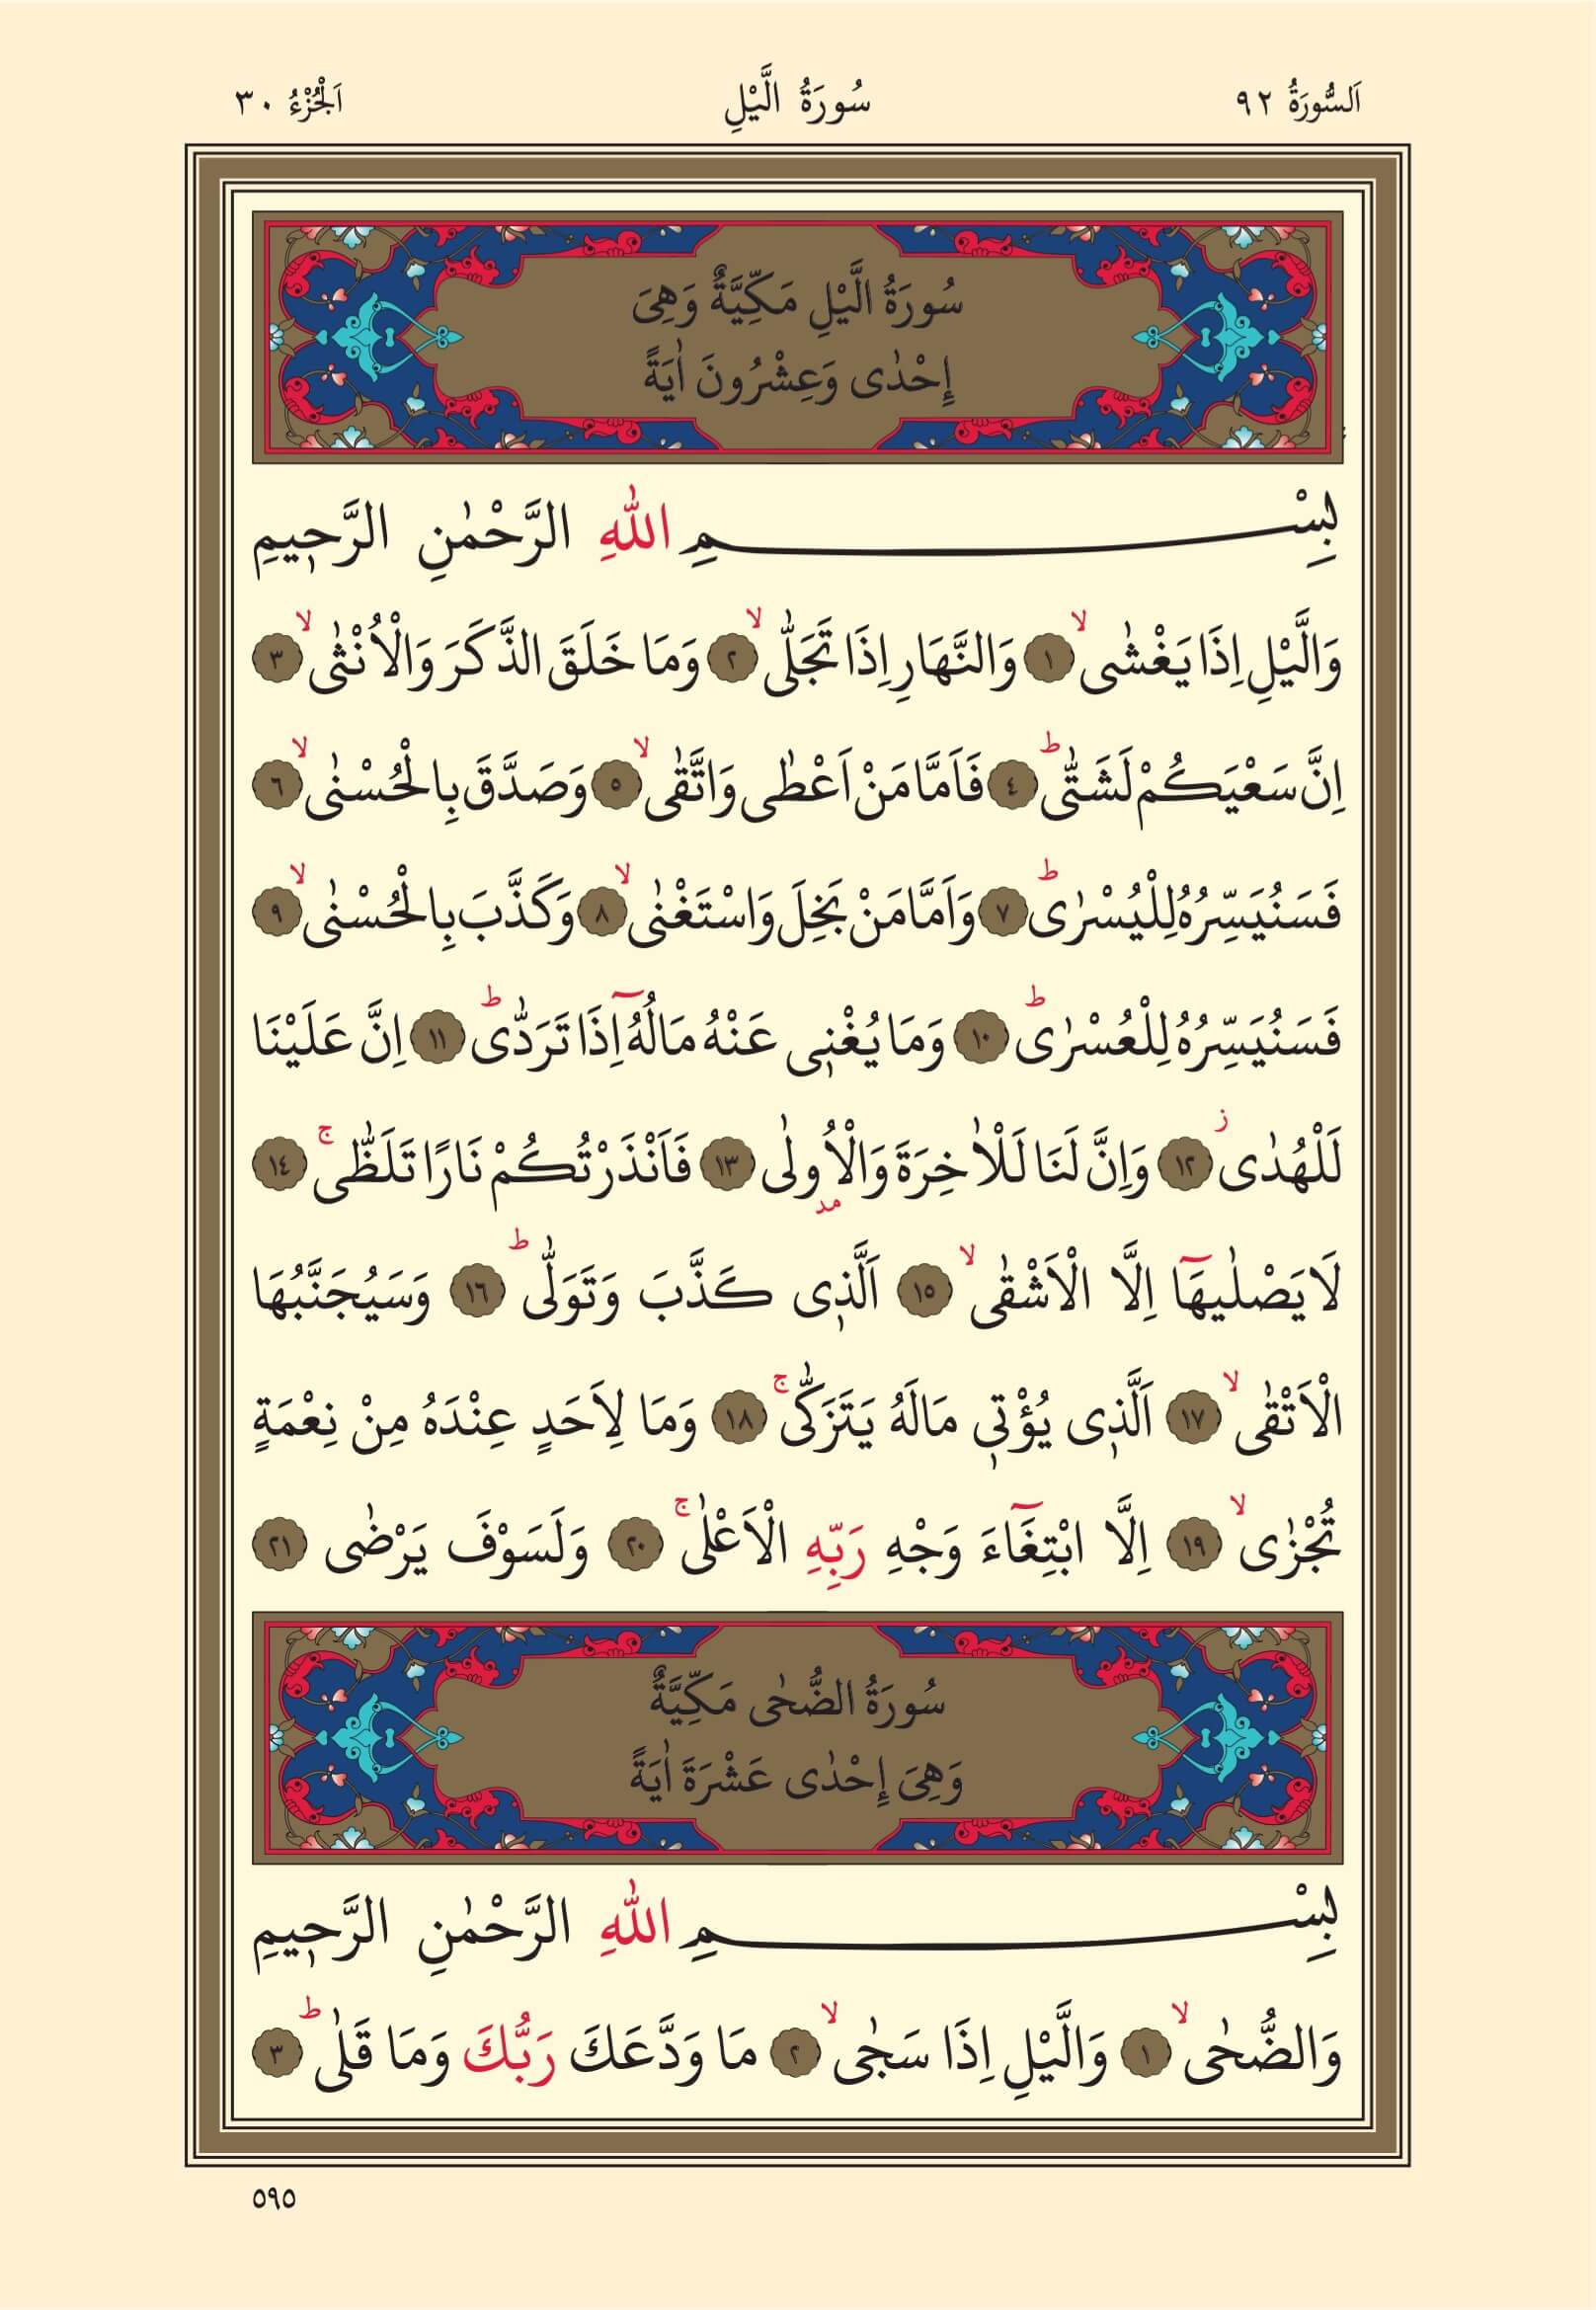 اَلسُّورَةُ ٩٢ سُورَةُ الَّيْلِ اَلْجُزْءُ ٣٠
سُورَةُ الَّيْلِ مَكِّيَّةٌ وَهِىَ
إِحْدٰى وَعِشْرُونَ اٰيَةً
بِسْمِ اللّٰهِ الرَّحْمٰنِ الرَّح۪يمِ
وَالَّيْلِ اِذَا يَغْشٰىۙ ﴿١﴾ وَالنَّهَارِ اِذَا تَجَلّٰىۙ ﴿٢﴾ وَمَا خَلَقَ الذَّكَرَ وَالْاُنْثٰىۙ ﴿٣﴾
اِنَّ سَعْيَكُمْ لَشَتّٰىۜ ﴿٤﴾ فَاَمَّا مَنْ اَعْطٰى وَاتَّقٰىۙ ﴿٥﴾ وَصَدَّقَ بِالْحُسْنٰىۙ ﴿٦﴾
فَسَنُيَسِّرُهُ لِلْيُسْرٰىۜ ﴿٧﴾ وَاَمَّا مَنْ بَخِلَ وَاسْتَغْنٰىۙ ﴿٨﴾ وَكَذَّبَ بِالْحُسْنٰىۙ ﴿٩﴾
فَسَنُيَسِّرُهُ لِلْعُسْرٰىۜ ﴿١٠﴾ وَمَا يُغْن۪ى عَنْهُ مَالُهُٓ اِذَا تَرَدّٰىۜ ﴿١١﴾ اِنَّ عَلَيْنَا
لَلْهُدٰىۘ ﴿١٢﴾ وَاِنَّ لَنَا لَلْاٰخِرَةَ وَالْاُو۫لٰى ﴿١٣﴾ فَاَنْذَرْتُكُمْ نَارًا تَلَظّٰىۚ ﴿١٤﴾
لَا يَصْلٰيهَٓا اِلَّا الْاَشْقٰىۙ ﴿١٥﴾ اَلَّذ۪ى كَذَّبَ وَتَوَلّٰىۜ ﴿١٦﴾ وَسَيُجَنَّبُهَا
الْاَتْقٰىۙ ﴿١٧﴾ اَلَّذ۪ى يُؤْت۪ى مَالَهُ يَتَزَكّٰىۚ ﴿١٨﴾ وَمَا لِاَحَدٍ عِنْدَهُ مِنْ نِعْمَةٍ
تُجْزٰىۙ ﴿١٩﴾ اِلَّا ابْتِغَٓاءَ وَجْهِ رَبِّهِ الْاَعْلٰىۚ ﴿٢٠﴾ وَلَسَوْفَ يَرْضٰى ﴿٢١﴾
سُورَةُ الضُّحٰى مَكِّيَّةٌ
وَهِىَ إِحْدٰى عَشْرَةَ اٰيَةً
بِسْمِ اللّٰهِ الرَّحْمٰنِ الرَّح۪يمِ
وَالضُّحٰىۙ ﴿١﴾ وَالَّيْلِ اِذَا سَجٰىۙ ﴿٢﴾ مَا وَدَّعَكَ رَبُّكَ وَمَا قَلٰىۜ ﴿٣﴾
٥٩٥